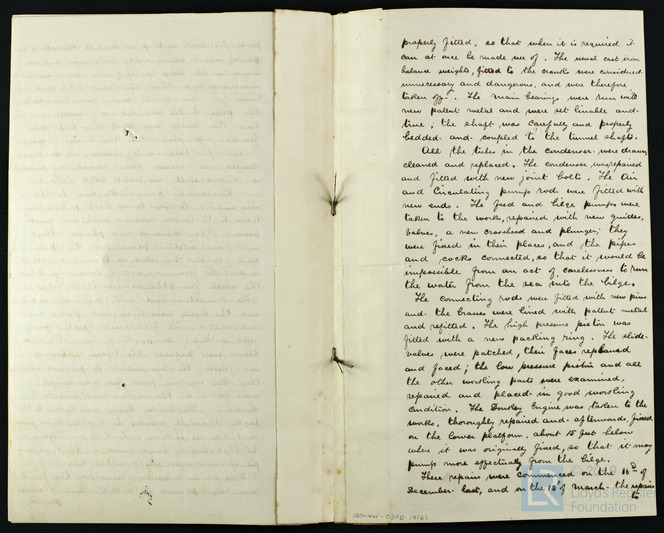 properly fitted, so that when it is required it
can at once be made use of. The usual cast iron
balance weights, fitted to the cranks were considered
unnecessary and dangerous, and were therefore
taken off. The main bearings were run with
new patent metal and were set linable and
true; the shaft was carefully and properly
bedded and coupled to the tunnel shafts.
All the tubes in the condenser were drawn,
cleaned and replaced. The condenser was repaired
and fitted with new joint bolts. The Air
and Circulating pump rods were fitted with
new ends. The feed and bilge pumps were
taken to the works, repaired with new guides,
valves, a new crosshead and plunger; they
were fixed in their places, and the pipes
and cocks connected, so that it would be
impossible from an act of carelessness to run
the water from the sea into the bilge.
The connecting rods were fitted with new pins
and the brasses were lined with patent metal
and refitted. The high pressure piston was
fitted with a new packing ring. The slide
valves were patched, their faces replaned
and faced; the low pressure piston and all
the other working parts were examined,
repaired and placed in good working
condition. The Donkey Engine was taken to the
works, thoroughly repaired and afterwards, fixed
on the lower platform, about 15 feet below
where it was originally fixed, so that it may
pump more effectually from the bilge.
These repairs were commenced on the 10th of
December last, and on the 12th of March the repairs
to
© 2019
Lloyd's Register
Foundation